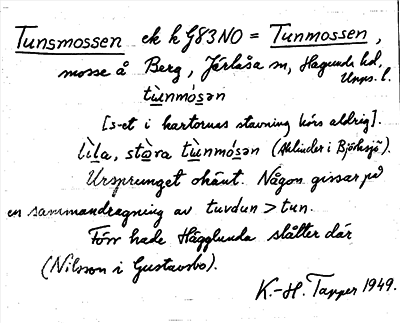 Tunsmossen ek k G83NO = Tunmossen,
mosse å Berg, Järlåsa sn, Hagunda hd,
Upps. l.
tùnmósən
[s-et i kartornas stavning hörs aldrig].
lìla, stòra tùnmósən (Ahlinder i Björksjö).
Ursprunget okänt. Någon gissar på
en sammandragning av tuvdun > tun.
Förr hade Hägglunda slåtter där
(Nilsson i Gustavsbo).
K.-H. Tapper 1949.